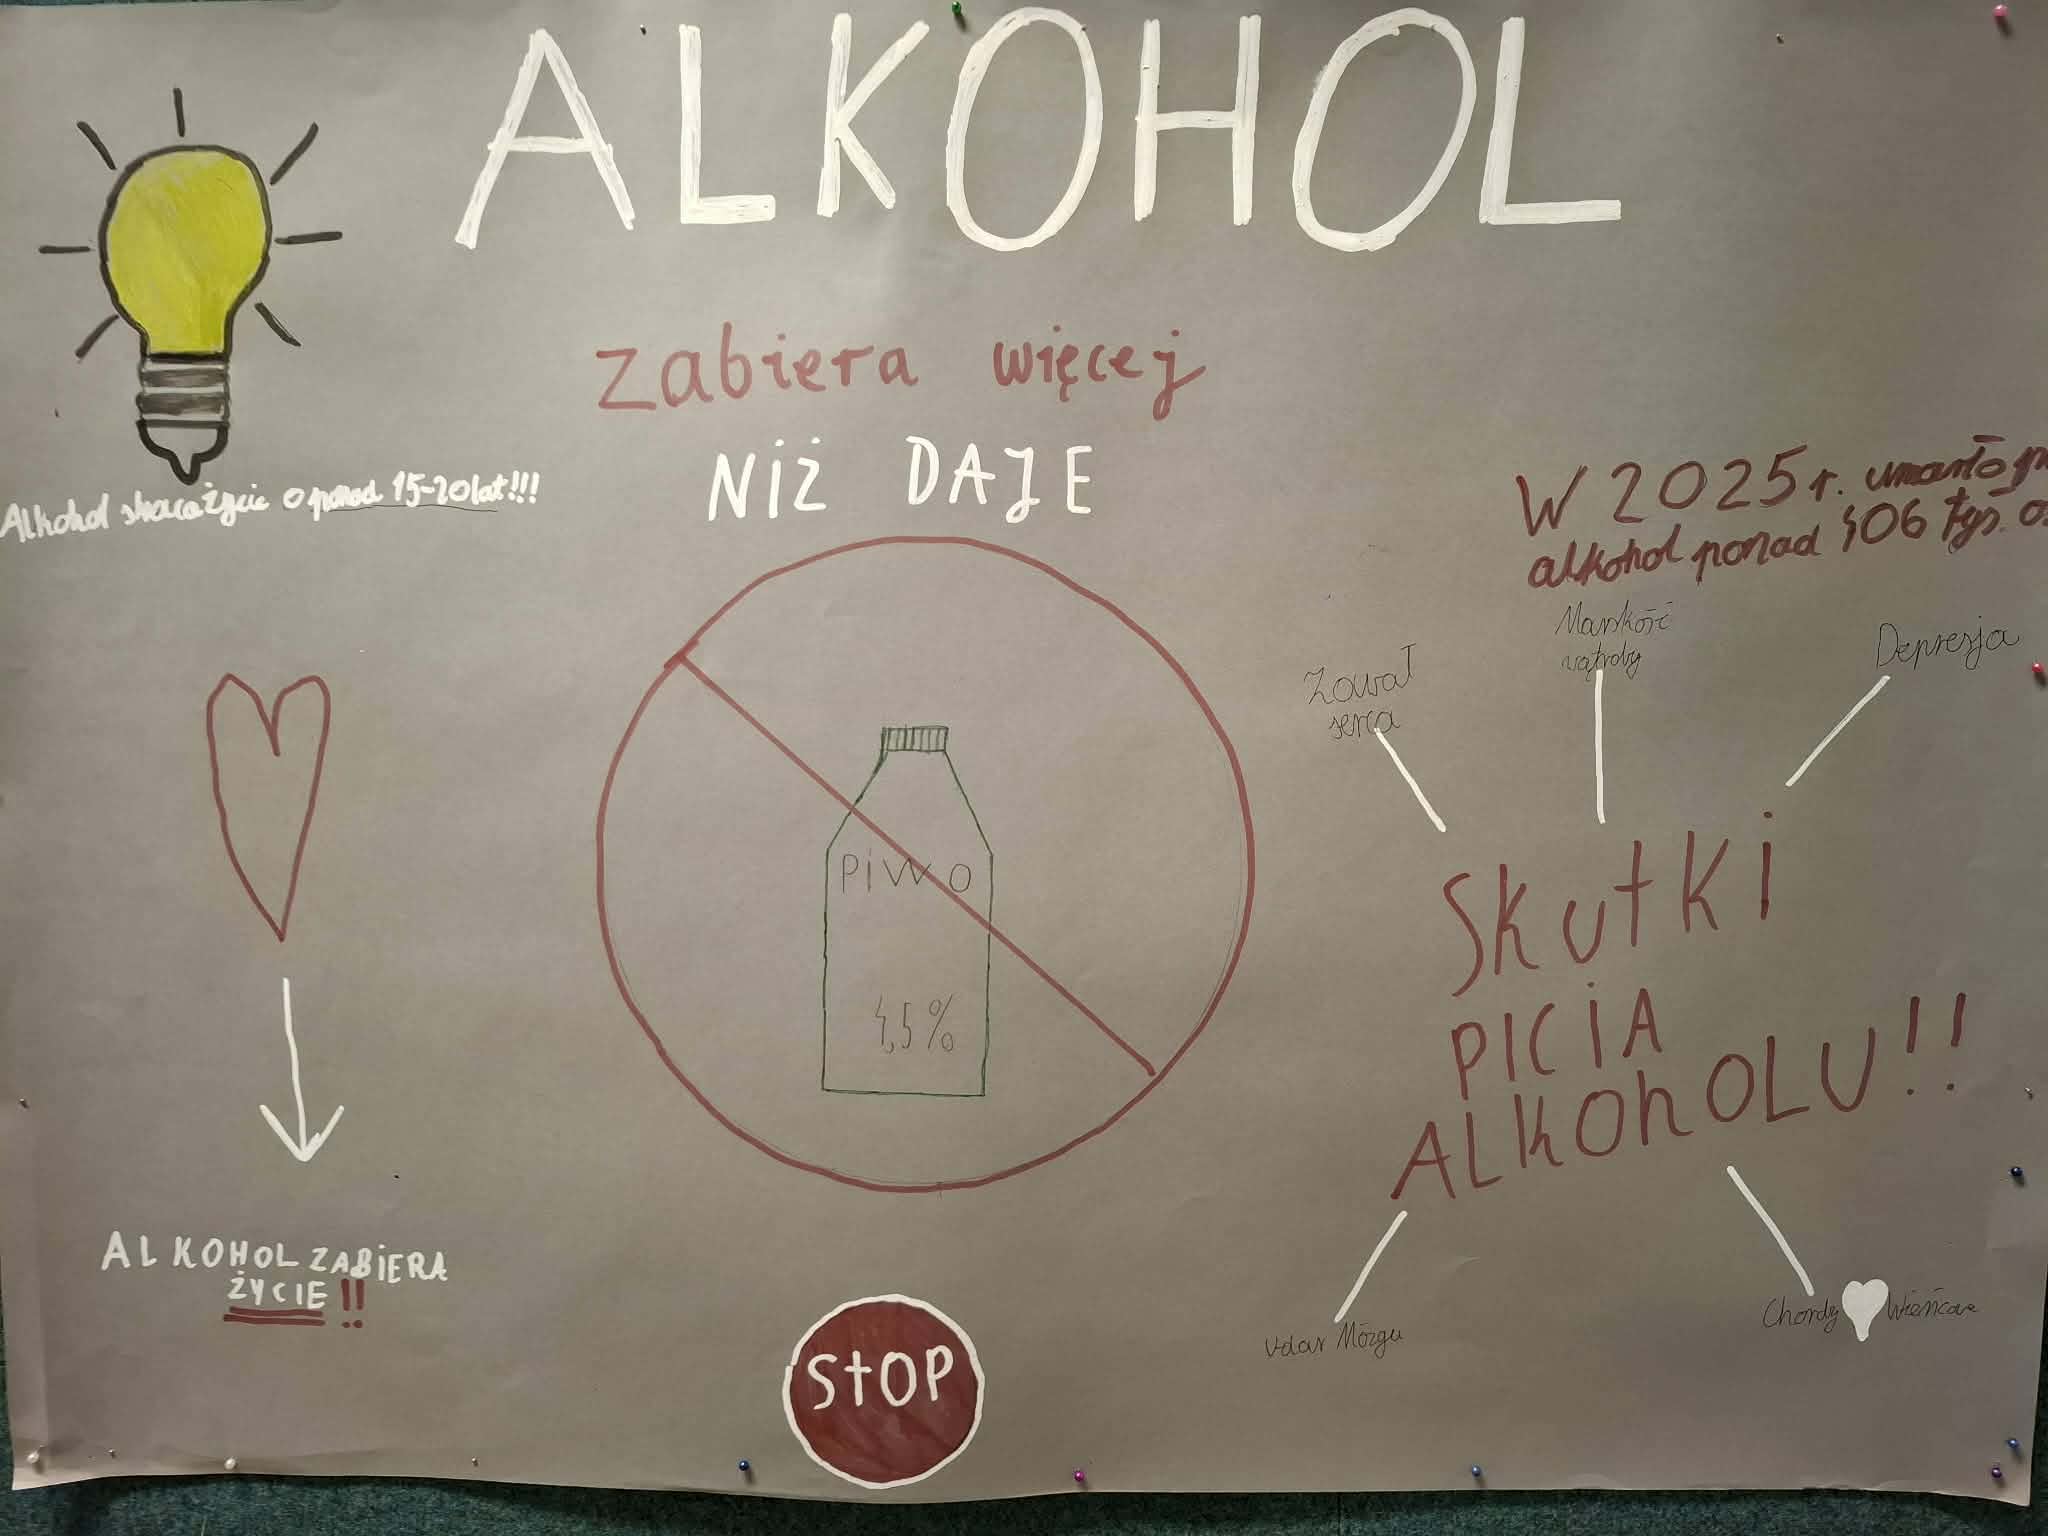 ALKOHOL
zabiera więcej
NIŻ DAJE
Alkohol skraca życie o ponad 15-20lat!!!
W 2025 r. umarło
alkohol ponad 406 tyś.
Zawał
serca
Marskość
wątroby
Depresja
PIWO
4,5%
SKUTKI
PICIA
ALKOHOLU!!
Udar Mózgu
Chordy Wieńcowe
ALKOHOL ZABIERA
ŻYCIE!!
STOP